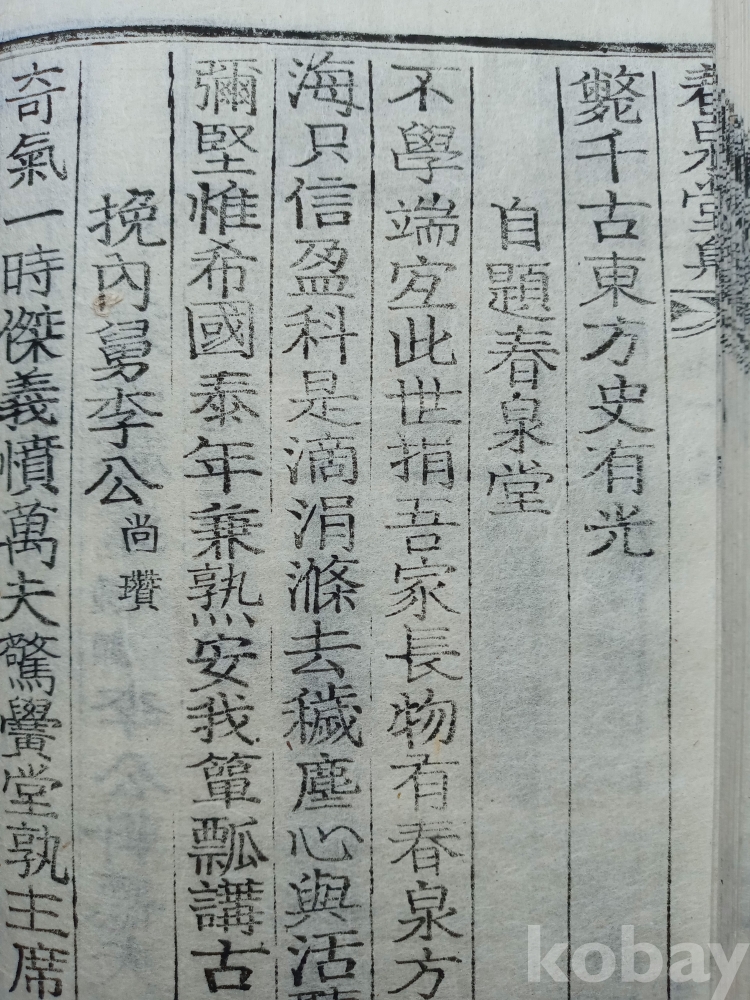 春泉堂集
斃千古東方史有光
自題春泉堂
不學端宜此世捐吾家長物有春泉方
海只信盈科是滴涓滌去穢塵心與活
彌堅惟希國泰年兼熟安我簞瓢講古
挽內舅李公尚瓚
奇氣一時傑義憤萬夫驚黌堂孰主席
kobay